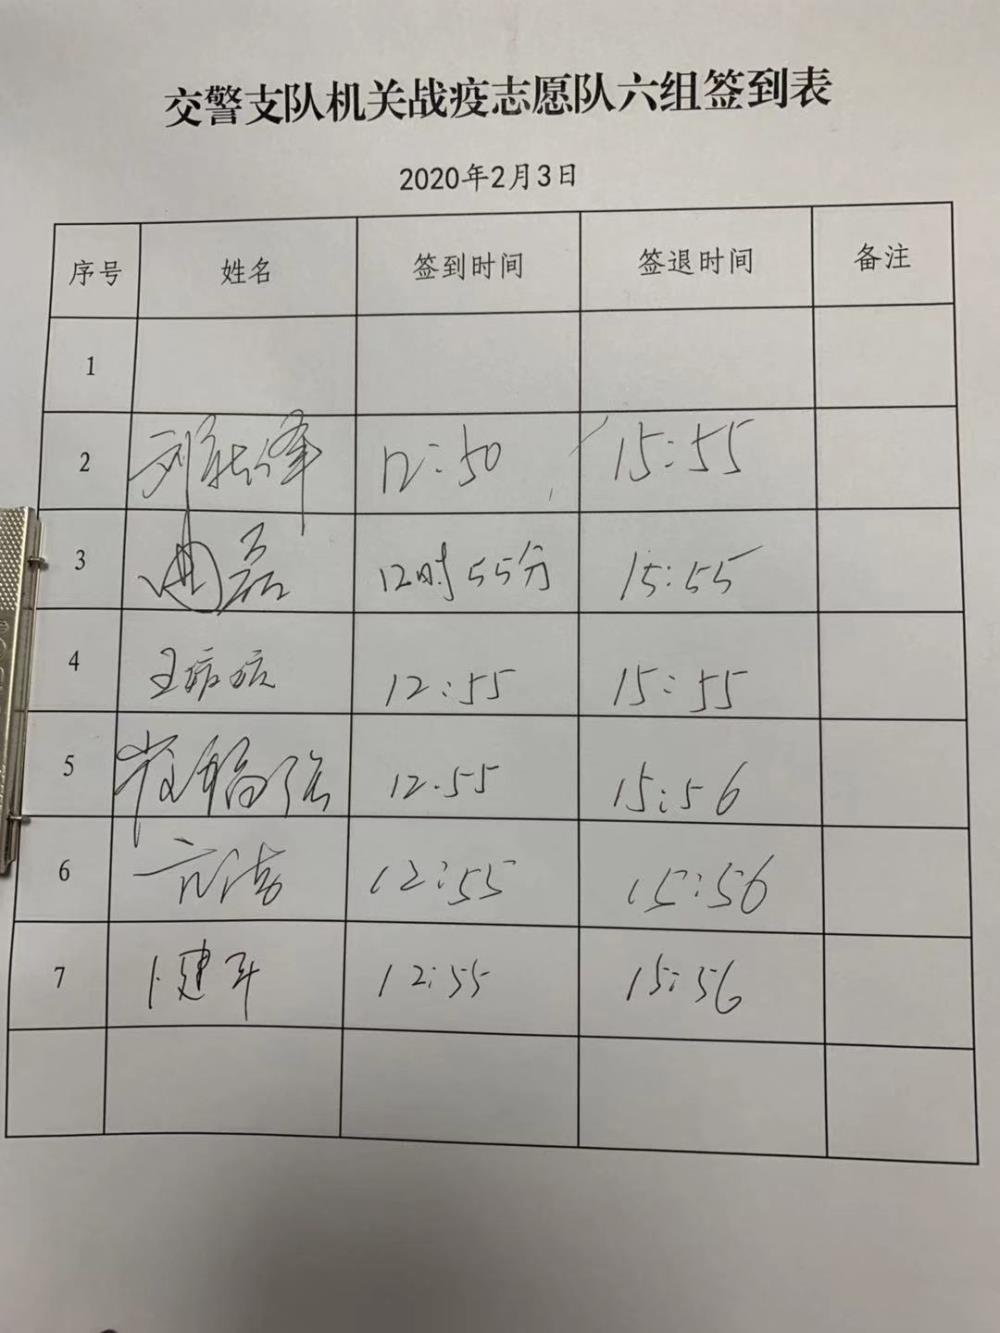 交警支队机关战疫志愿队六组签到表
2020年2月3日
序号 姓名 签到时间 签退时间 备注
1
2 12:50 15:55
3 磊 12时55分 15:55
4 王 12:55 15:55
5 强 12.55 15:56
6 12:55 15:56
7 卜建平 12:55 15:56